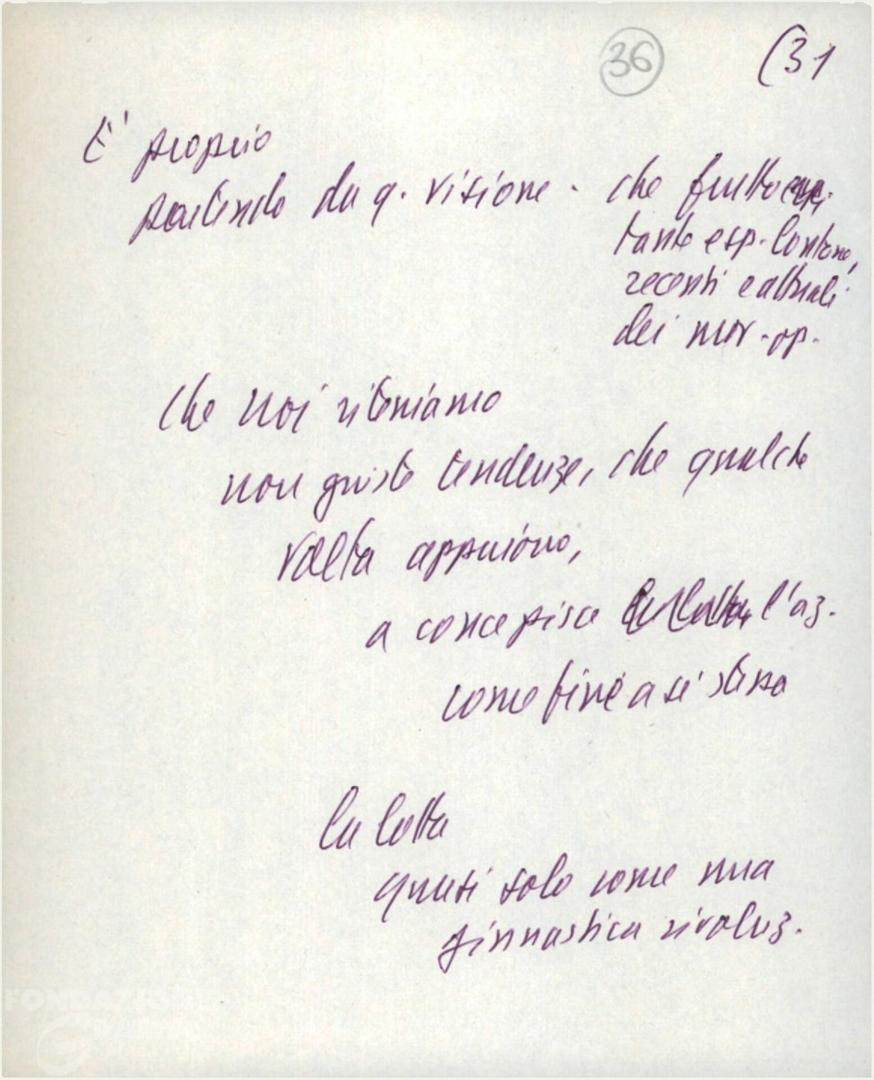 36
(31
E' proprio
partendo da q. visione - che frutto
tante esp. lontane,
recenti e attuali
dei mov. op.
che noi riteniamo
non giuste tendenze, che qualche
volta appaiono,
a concepire l'az.
come fine a sé stessa
la lotta
quasi solo come una
ginnastica rivoluz.
FONDAZIONE